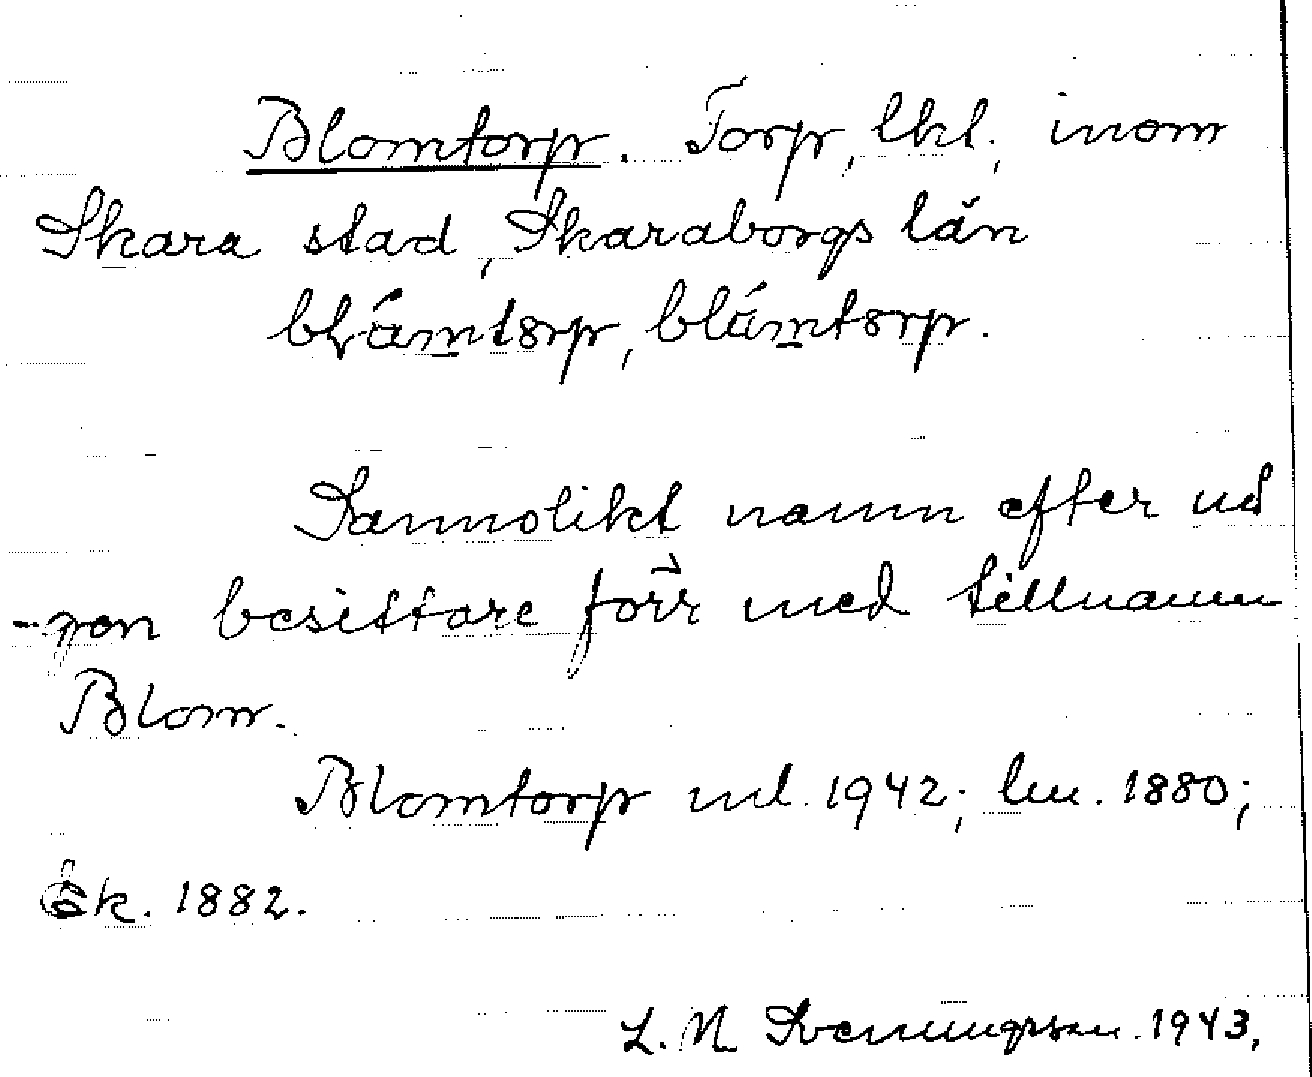 Blomtorp. Torp, lht, inom
Skara stad, Skaraborgs län
blámtorp, blámtorp.
Sannolikt namn efter nå
-gon besittare förr med tillnamn
Blom.
Blomtorp ml. 1942; lm. 1880;
Ek. 1882.
L. N. Svenungsson. 1943.